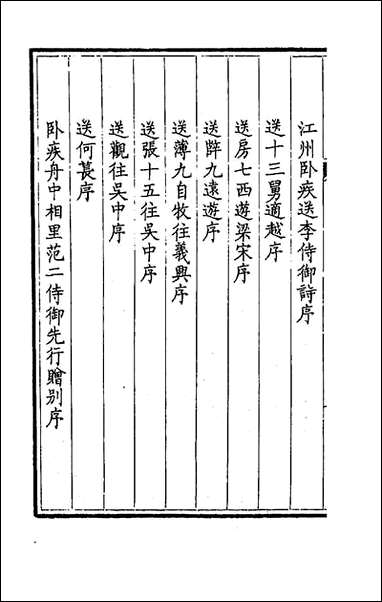 江州卧疾送李侍御詩序
送十三舅適越序
送房七西遊梁宋序
送薛九遠遊序
送薄九自牧往義興序
送張十五往吳中序
送觀往吳中序
送何萇序
卧疾舟中相里范二侍御先行贈别序